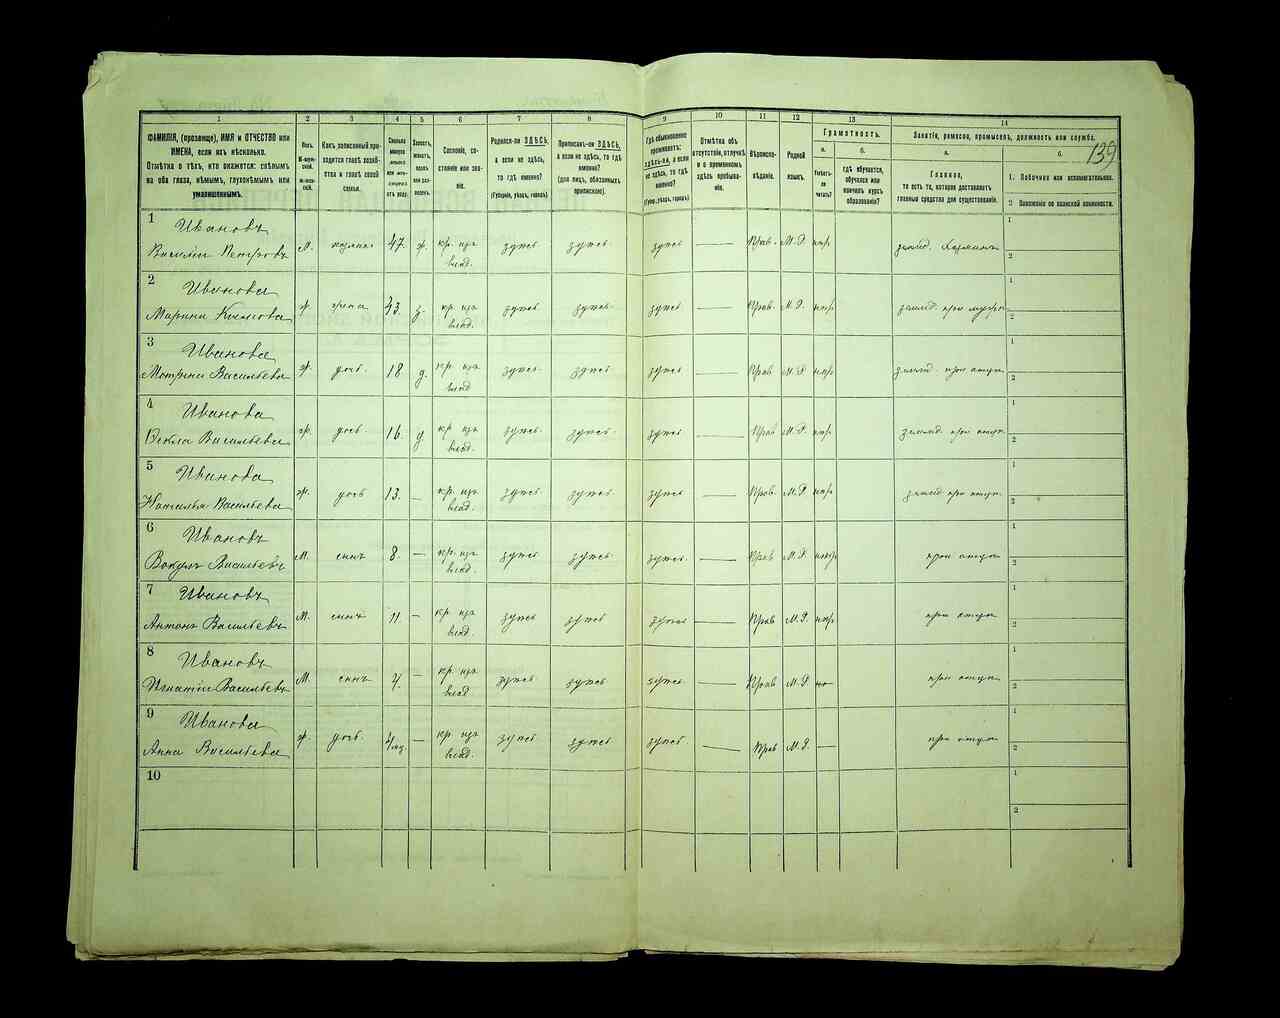 139
1 2 3 4 5 6 7 8 9 10 11 12 13 14
ФАМИЛІЯ, (прозвище), ИМЯ и ОТЧЕСТВО или
ИМЕНА, если ихъ нѣсколько.
Отмѣтка о тѣхъ, кто окажется: слѣпымъ
на оба глаза, нѣмымъ, глухонѣмымъ или
умалишеннымъ.
Полъ.
Какъ записанный при-
ходится главѣ хозяй-
ства и главѣ своей
семьи.
Сословіе, со-
стояніе или зва-
ніе.
Родился-ли ЗДѢСЬ,
а если не здѣсь,
то гдѣ именно?
(Губернія, уѣздъ, городъ).
Приписанъ-ли ЗДѢСЬ,
а если не здѣсь, то гдѣ
именно?
(для лицъ, обязанныхъ
припискою).
Гдѣ обыкновенно
проживаетъ:
здѣсь-ли, а если
не здѣсь, то гдѣ
именно?
(Губер., уѣздъ, городъ).
Отмѣтка объ
отсутствіи, отлучкѣ
и о временномъ
здѣсь пребыва-
ніи.
Вѣроиспо-
вѣданіе.
Родной
языкъ.
Грамотность.
а.
Умѣетъ-
ли
читать?
б.
гдѣ обучается,
обучался или
кончилъ курсъ
образованія?
Занятіе, ремесло, промыселъ, должность или служба.
а.
Главное,
то есть то, которое доставляетъ
главныя средства для существованія.
б.
1. Побочное или вспомогательное.
2 Положеніе по воинской повинности.
1 Ивановъ
Василій Петровъ м. хозяин 47. ж. кр. изъ влад. здѣсь здѣсь здѣсь — Прав. М.Р. нѣтъ землед. хозяинъ 1 2
2 Иванова
Марина ж. жена 43. з. кр. изъ влад. здѣсь здѣсь здѣсь — Прав. М.Р. землед. при мужѣ 1 2
3 Иванова
Матрена Васильева ж. дочь. 18 д. кр. изъ влад здѣсь здѣсь здѣсь — Прав М.Р. землед. при отцѣ 1 2
4 Иванова
Ѳекла Васильева ж. дочь 16. д. кр. изъ влад. здѣсь здѣсь здѣсь — Прав М.Р. землед. при отцѣ 1 2
5 Иванова
Наталья Васильева ж. дочь 13. — кр. изъ влад. здѣсь здѣсь здѣсь — Прав. М.Р. землед при отцѣ 1 2
6 Ивановъ
Вакулъ Васильевъ М. сынъ 8. — кр. изъ влад. здѣсь здѣсь здѣсь — Прав М.Р. при отцѣ 1 2
7 Ивановъ
Антонъ Васильевъ М. сынъ 11 — кр. изъ влад. здѣсь здѣсь здѣсь — Прав М.Р. при отцѣ 1 2
8 Ивановъ
Игнатій Васильевъ М. сынъ 4. — кр. изъ влад здѣсь здѣсь здѣсь — Прав М.Р при отцѣ 1 2
9 Иванова
Анна Васильева ж. дочь. кр. изъ влад. здѣсь здѣсь здѣсь — Прав М.Р. — при отцѣ 1 2
10 1 2